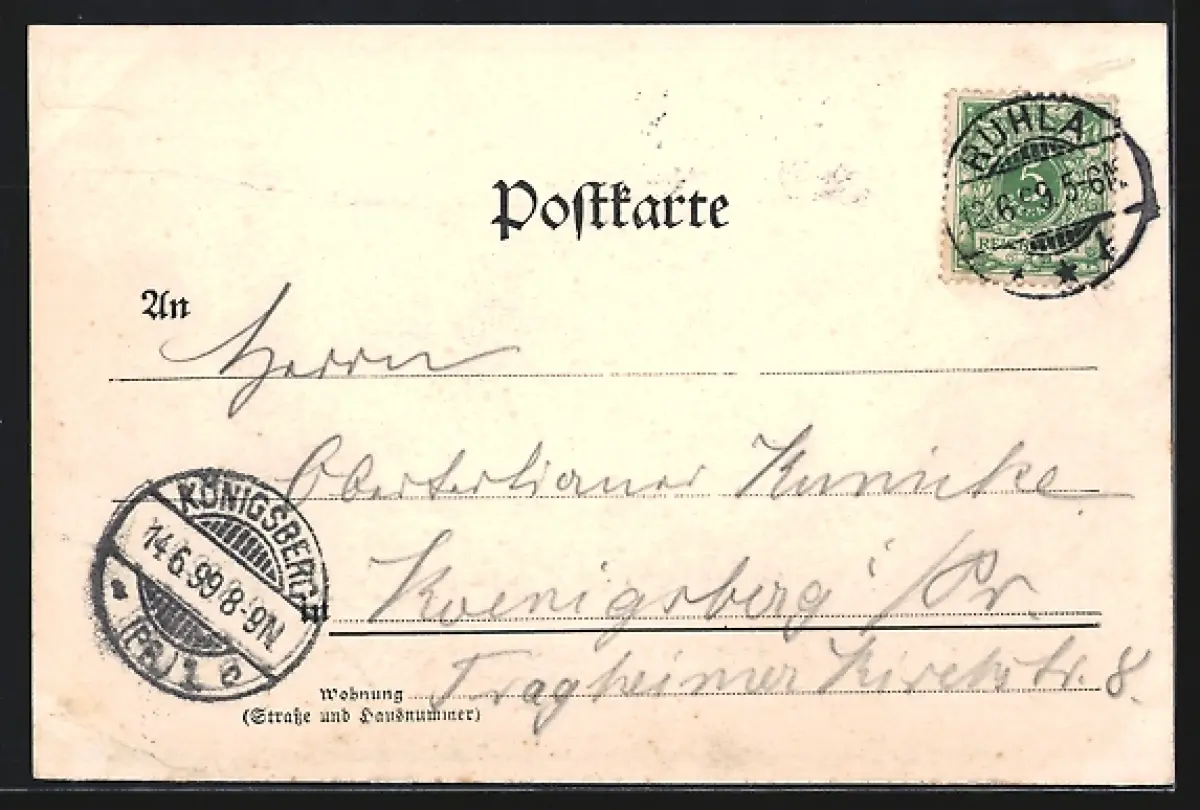 Postkarte
RUHLA
12.6.99. 5-6N.
5
REICHS
An
Herrn
Obertertianer Kunicke
Koenigsberg i/Pr.
Tragheimer Kirchstr. 8.
Wohnung
(Straße und Hausnummer)
KÖNIGSBERG
14.6.99 8-9N
(PR.) 1 e